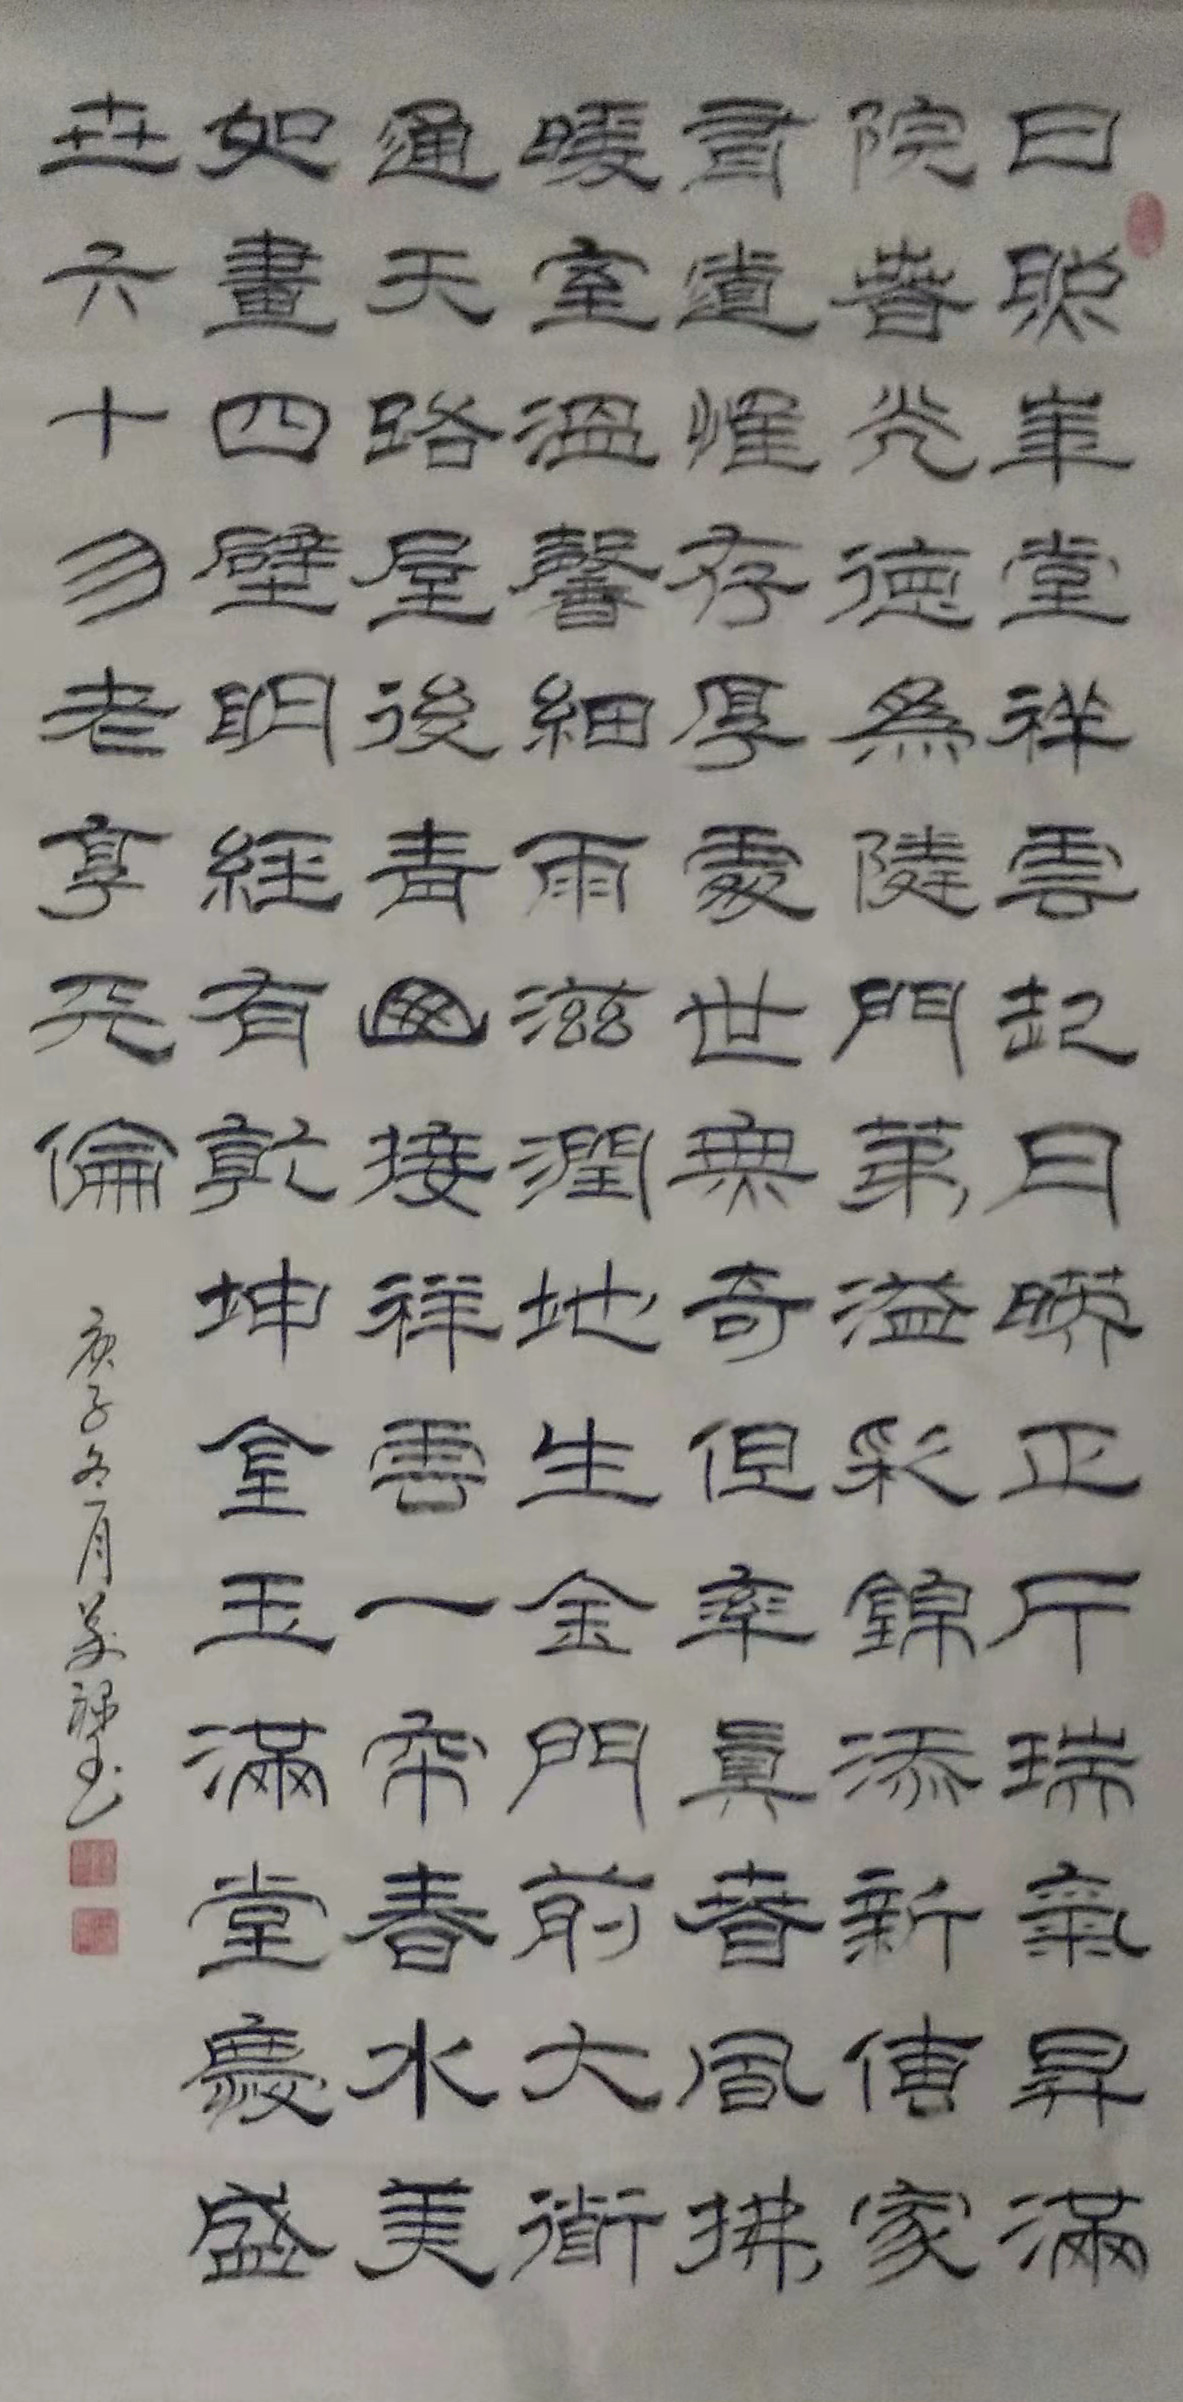 日照華堂祥雲起月映正廳瑞氣昇滿
院春光德為陡門第溢彩錦添新傳家
書道惟存厚處世無奇但率真春風拂
暖室溫馨細雨滋潤地生金門前大道
通天路屋後青山接祥雲一帘春水美
如畫四壁明經有乾坤金玉滿堂慶盛
世六十勿老享天倫
庚子冬月